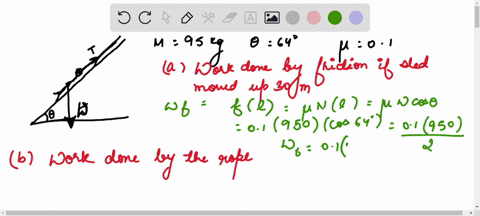 M = 95 kg θ = 64° μ = 0.1
(a) Work done by friction if sled
moved up 30 m
Wf = f(l) = μN(l) = μW cosθ
= 0.1 (950) (cos 64°) = 0.1 (950)
2
W6 = 0.1(
(b) Work done by the rope
T
θ
W